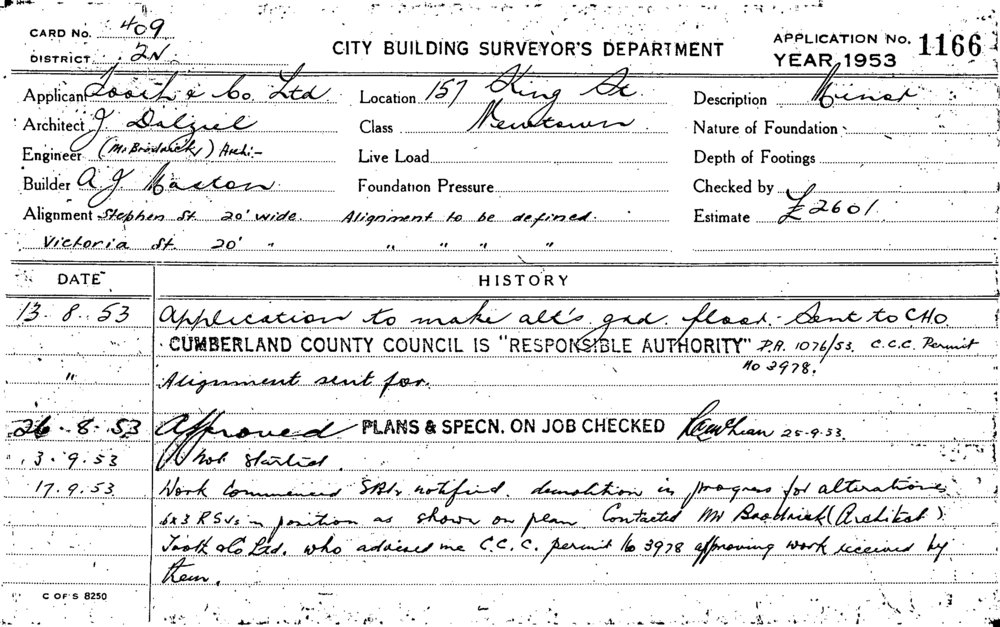 CARD No. 409
DISTRICT 2N.
CITY BUILDING SURVEYOR'S DEPARTMENT
APPLICATION No. 1166
YEAR 1953
Applicant Tooth & Co. Ltd
Location 157 King St
Description Minor
Architect J Dalziel
Class Newtown
Nature of Foundation
Engineer (Mr Brodrick) Archi:-
Live Load
Depth of Footings
Builder A J Maston
Foundation Pressure
Checked by
Alignment Stephen St. 20' wide. Alignment to be defined.
Estimate £2601
Victoria St. 20' " " " " "
DATE HISTORY
13. 8. 53 Application to make alt's gnd. floor. Sent to CHO.
CUMBERLAND COUNTY COUNCIL IS "RESPONSIBLE AUTHORITY" D.A. 1076/53. C.C.C. Permit
No 3978.
" Alignment sent for.
26. 8. 53 Approved PLANS & SPECN. ON JOB CHECKED 25-9-53.
3. 9. 53 Not started.
17. 9. 53 Work commenced notified. demolition in progress for alterations
6x3 RSJs in position as shown on plan. Contacted Mr Brodrick (Architect).
Tooth & Co Ltd. who advised me C.C.C. permit No 3978 approving work received by
them.
C OF S 8250